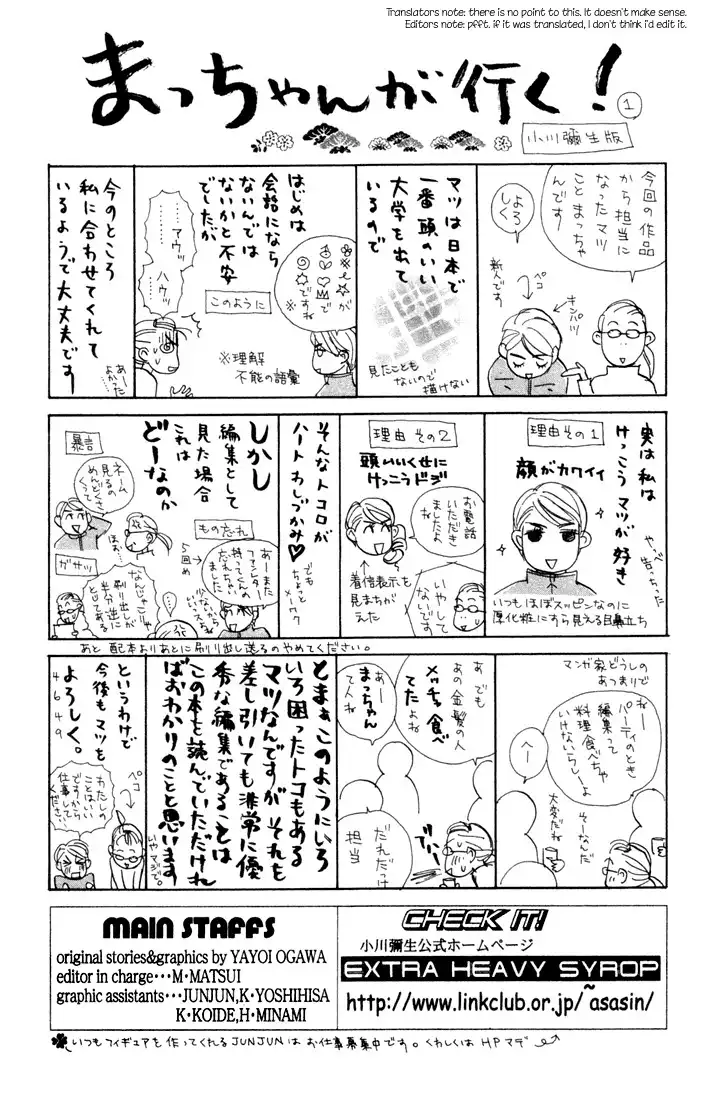 Translators note: there is no point to this. It doesn't make sense.
Editors note: pfft. if it was translated, I don't think i'd edit it.
まっちゃんが行く!
1
小川彌生版
今回の作品
から担当に
なったマツ
ことまっちゃ
んです
よろ
しく
ペコ
キンパツ
新人です
マツは日本で
一番頭のいい
大学を出て
いるので
見たことも
ないので
描けない
はじめは
会話になら
ないんでは
ないかと不安
でしたが
このように
が
で
ですね
※
※理解
不能の語彙
……アウッ
…ハウッ
今のところ
私に合わせてくれて
いるようで大丈夫です
あーた
よかった
実は私は
けっこうマツが好き
やべ
告っちった
理由その1
顔がカワイイ
いつもほぼスッピンなのに
厚化粧にすら見える目鼻立ち
理由その2
頭いいくせに
けっこうドジ
お電話
いただき
ましたよ
ね
着信表示を
見まちが
えた
いやして
ないです
そんなトコロが
ハートわしづかみ♡
でも
ちょっと
メーワク
しかし
編集として
見た場合
これは
どーなのか
もの忘れ
5回め
あーまた
ファンレター
持ってくんの
忘れちゃい
ました
暴言
ネーム
見るの
めんどくさ
くって
ほぉ…
ガサツ
なんじゃこりゃ
刷り出しが
半分に
とじてある
あと 配本よりあとに刷り出し送るのやめてください。
マンガ家どうしの
あつまりで
ねー
パーティのとき
編集って
料理食べちゃ
いけないらしいよ
へー
そーなんだ
大変だね
あ でも
あの金髪の人
メッチャ食べ
てたよね
あー
まっちゃん
て人ね
だれだっけ
担当
でで〜ん
とまあこのようにいろ
いろ困ったトコもある
マツなんですがそれを
差し引いても非常に優
秀な編集であることは
この本を読んでいただけれ
ばおわかりのことと思います
というわけで
今後もマツを
よろしく。
4649
ペコ
わたしの
ことはいい
ですから
仕事して
ください
いやマジで。
MAIN STAFFS
original stories&graphics by YAYOI OGAWA
editor in charge･･･M･MATSUI
graphic assistants･･･JUNJUN,K･YOSHIHISA
K･KOIDE,H･MINAMI
CHECK IT!
小川彌生公式ホームページ
EXTRA HEAVY SYROP
http://www.linkclub.or.jp/~asasin/
いつもフィギュアを作ってくれるJUNJUNはお仕事募集中です。くわしくはHPマデ